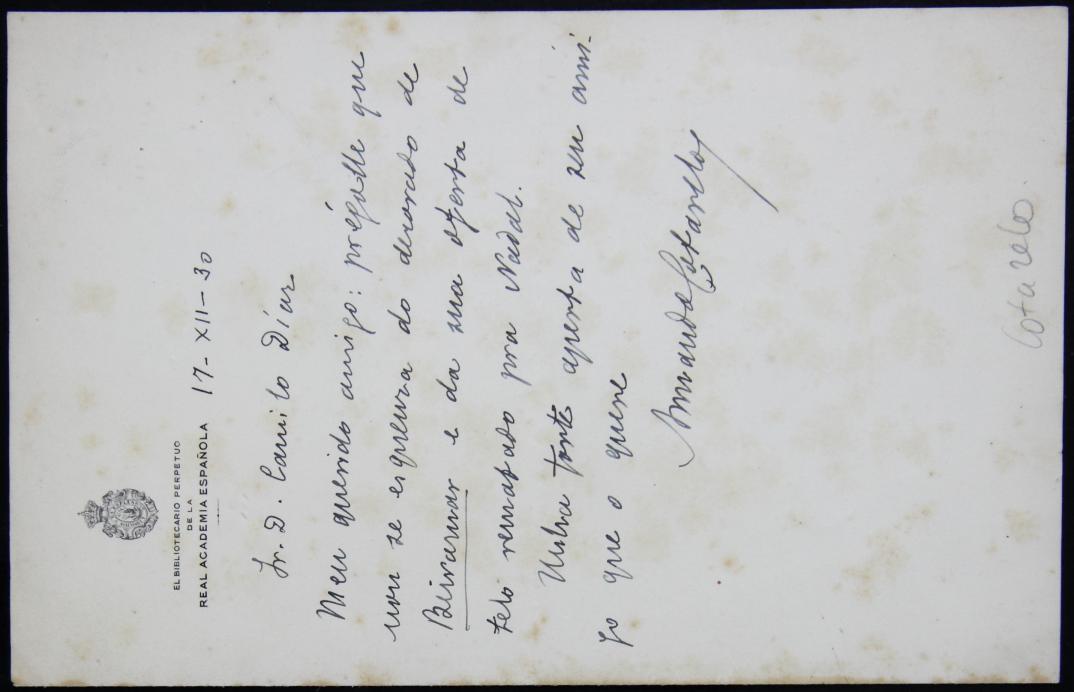 EL BIBLIOTECARIO PERPETUO
DE LA
REAL ACADEMIA ESPAÑOLA 17-XII-30
Sr. D. Camilo Díaz
Meu querido amigo: prégolle que
non se esqueza do decorado de
Beiramar e da sua oferta de
telo rematado pra Nadal.
Unha forte aperta de seu ami-
go que o quere
Armando Cotarelo
Cotarelo